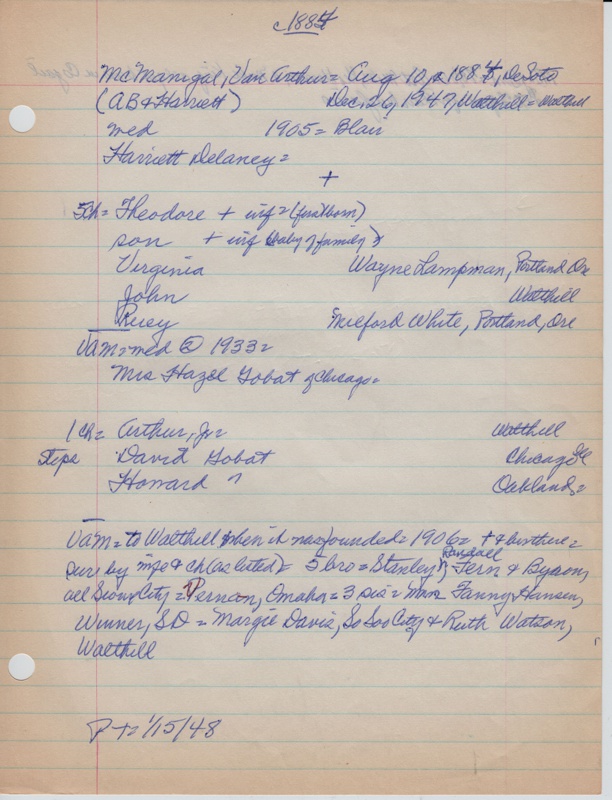 c 1884
McManigal, Van Arthur = Aug 10, 1884, DeSoto
(AB & Harriett) Dec, 26, 1947, Walthill = Walthill
med 1905 = Blair
Harriett Delaney =
+
5Ch = Theodore + inf = (firstborn)
son + inf (baby of family)
Virginia Wayne Lampman, Portland Ore
John Walthill
Ruey Milford White, Portland, Ore
VAM = med @ 1933 =
Mrs Hazel Gobat of Chicago =
1 Ch = Arthur, Jr = Walthill
Steps David Gobat Chicago Ill
Howard " Oakland =
VAM = to Walthill when it was founded = 1906 = + & bur there =
sur by wife & ch (as listed) = 5 bro = Stanley, Randall, Fern & Byron,
all Sioux City = Vernon, Omaha = 3 sis = Mmes Fanny Hansen,
Winner, SD = Margie Davis, So Soo City & Ruth Watson,
Walthill
P += 1/15/48